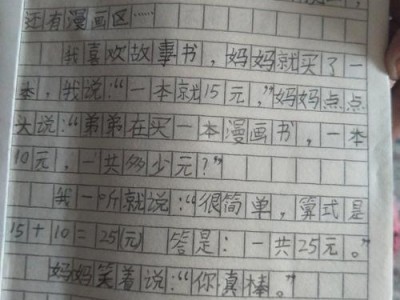 还有漫画区……
我喜欢故事书，妈妈就买了一
本，我说：“一本就15元，”妈妈点点
头说：“弟弟在买一本漫画书，一本
10元，一共多少元？”
我一听就说：“很简单，算式是
15+10=25(元) 答是：一共25元。”
妈妈笑着说：“你真棒。”